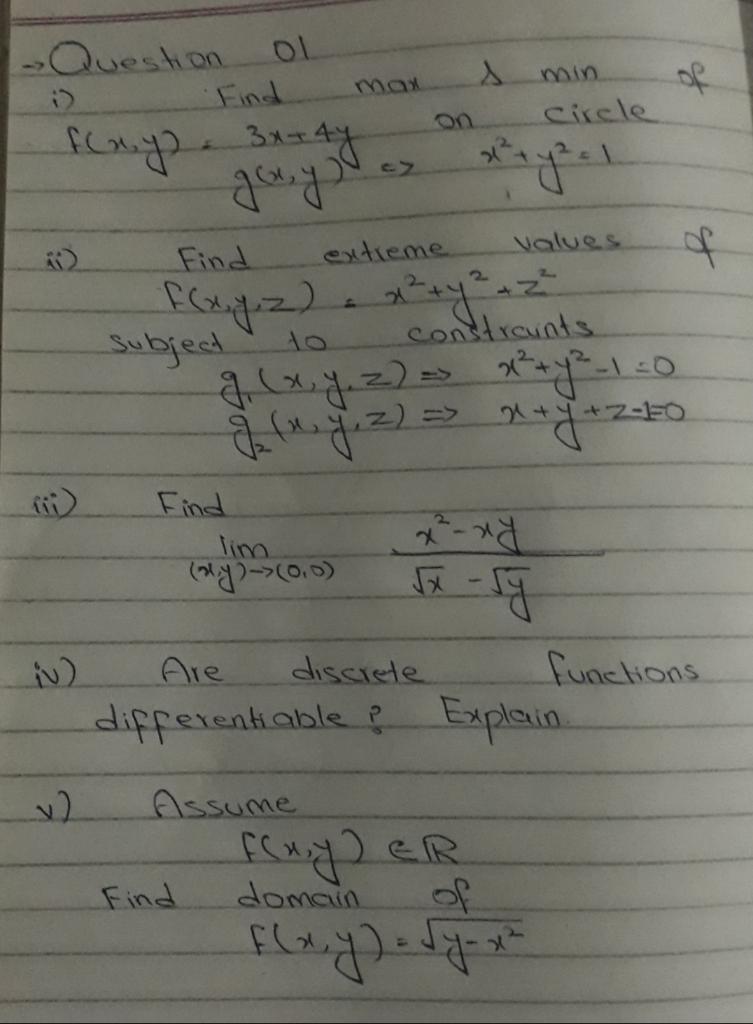 → Question 01
i) Find max & min of
f(x,y) = 3x+4y on circle
g(x,y) => x²+y²=1
ii) Find extreme values of
f(x,y,z) = x²+y²+z²
subject to constraunts
g₁(x,y,z) => x²+y²-1=0
g₂(x,y,z) => x+y+z-1=0
iii) Find
lim (x,y)->(0,0) x²-xy / √x - √y
iv) Are discrete functions
differentiable? Explain.
v) Assume
f(x,y) ∈ ℝ
Find domain of
f(x,y) = √y-x²